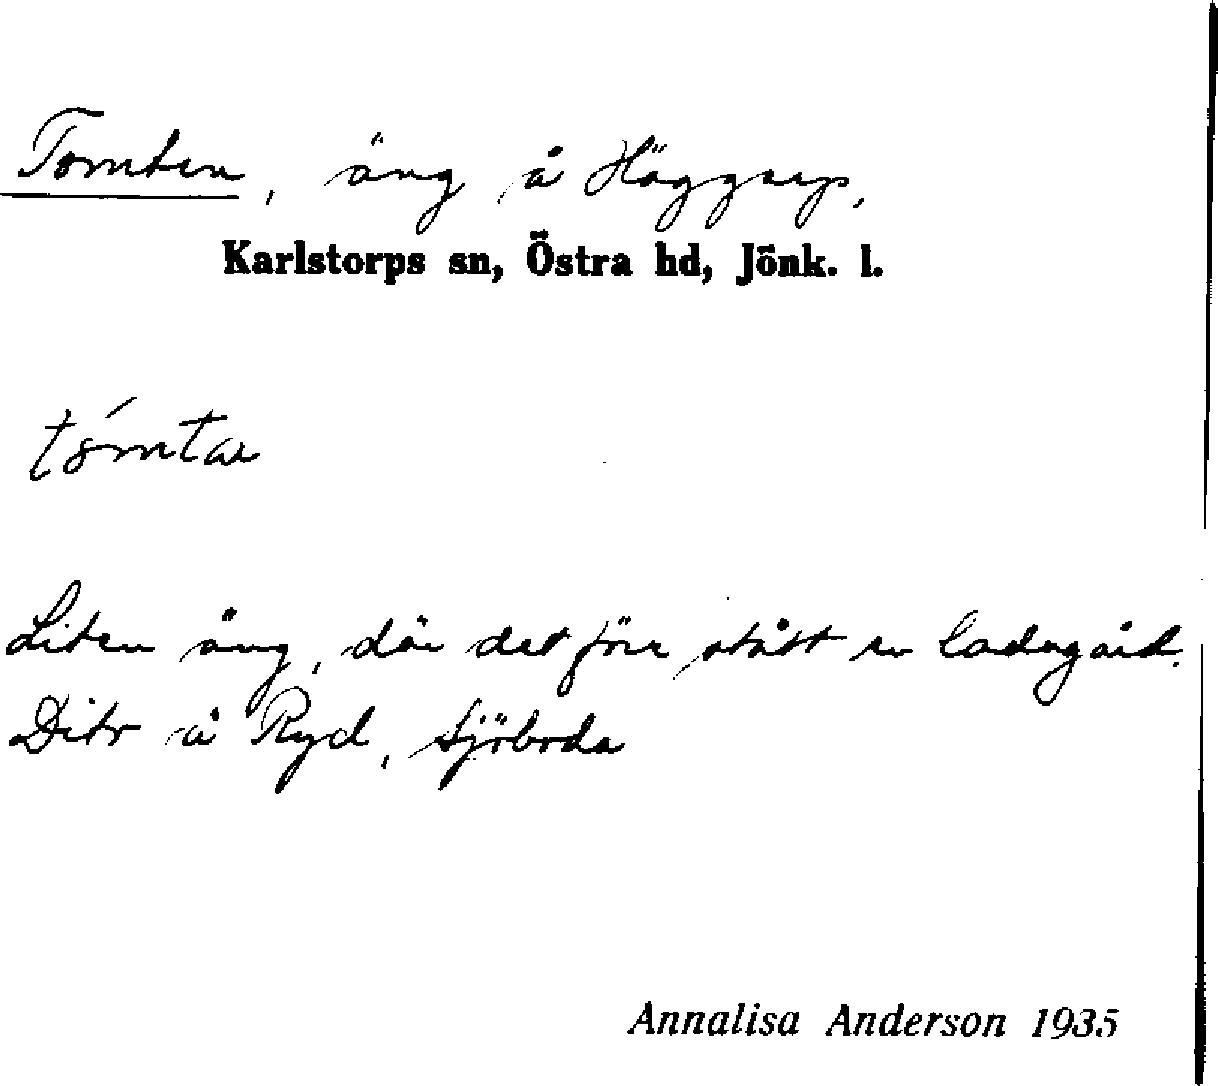 Tomten, äng å Häggarp,
Karlstorps sn, Östra hd, Jönk. l.
Liten äng, där det förr stått en ladugård.
Dito å Ryd, Sjöboda
Annalisa Anderson 1935